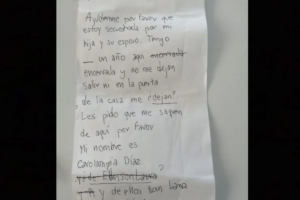 Ayúdenme por favor que
estoy secuestrada por mi
hija y su esposo. Tengo
un año aquí encerrada
encerrada y no me dejan
salir ni en la puerta
de la casa me dejan?
Les pido que me saquen
de aquí por favor
Mi nombre es
Díaz
y de
y de ellos son